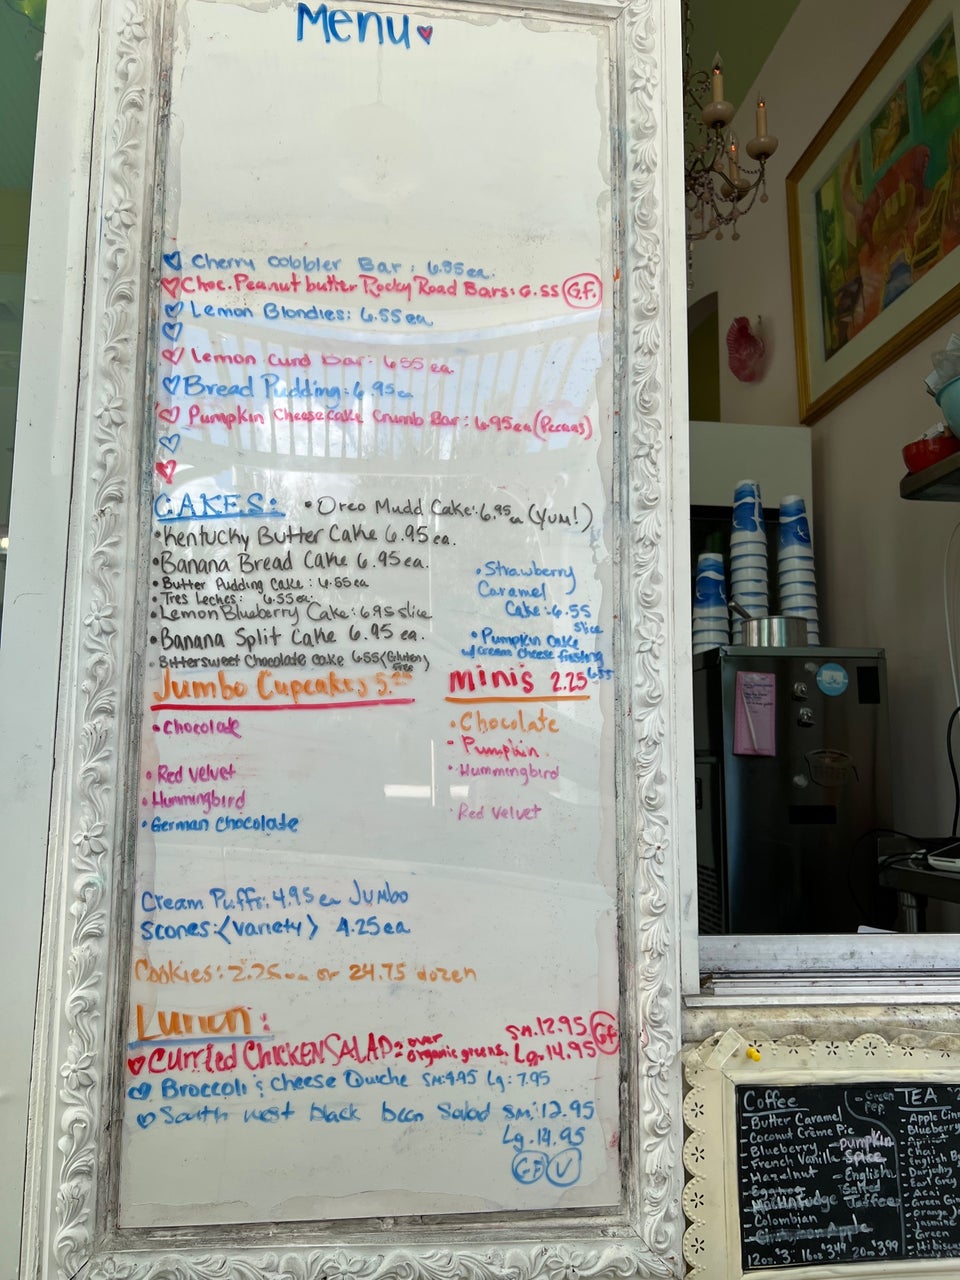 Menu
Cherry Cobbler Bar: 6.95 ea.
Choc. Peanut butter Rocky Road Bars: 6.55 G.F.
Lemon Blondies: 6.55 ea
Lemon Curd Bar: 6.55 ea
Bread Pudding: 6.95 ea
Pumpkin Cheesecake Crumb Bar: 6.95 ea (Pecans)
CAKES:
• Oreo Mudd Cake: 6.95 ea (Yum!)
• Kentucky Butter Cake 6.95 ea.
• Banana Bread Cake 6.95 ea.
• Butter Pudding Cake: 6.55 ea
• Tres Leches: 6.55 ea.
• Lemon Blueberry Cake: 6.95 slice
• Banana Split Cake 6.95 ea.
• Bittersweet Chocolate Cake 6.55 (Gluten free)
• Strawberry
Caramel
Cake: 6.55
slice
• Pumpkin Cake
w/cream cheese frosting
6.55
Jumbo Cupcakes 5.25
• Chocolate
• Red Velvet
• Hummingbird
• German Chocolate
Minis 2.25
• Chocolate
• Pumpkin
• Hummingbird
Red Velvet
Cream Puffs: 4.95 ea Jumbo
Scones: <Variety> 4.25 ea
Cookies: 2.25 ea or 24.75 dozen
Lunch:
Curried CHICKEN SALAD: over organic greens. Sm. 12.95 GF
Lg. 14.95
Broccoli & Cheese Quiche Sm: 4.95 Lg: 7.95
South west black bean Salad Sm: 12.95
Lg. 14.95
GF V
Coffee
- Butter Caramel
- Coconut Crème Pie
- Blueberry
- French Vanilla
- Hazelnut
- Eggnog
- Colombian
- Cinnamon Apple
12oz. $3. 16oz $3.49 20oz $3.99
- Green
Pep.
- Pumpkin
Spice
- English
Toffee
TEA
- Apple Cinn
- Blueberry
- Chai
- English B
- Darjeeling
- Earl Grey
- Acai
- Green Gin
- Orange Ja
- Jasmine
- Green
- Hibiscu